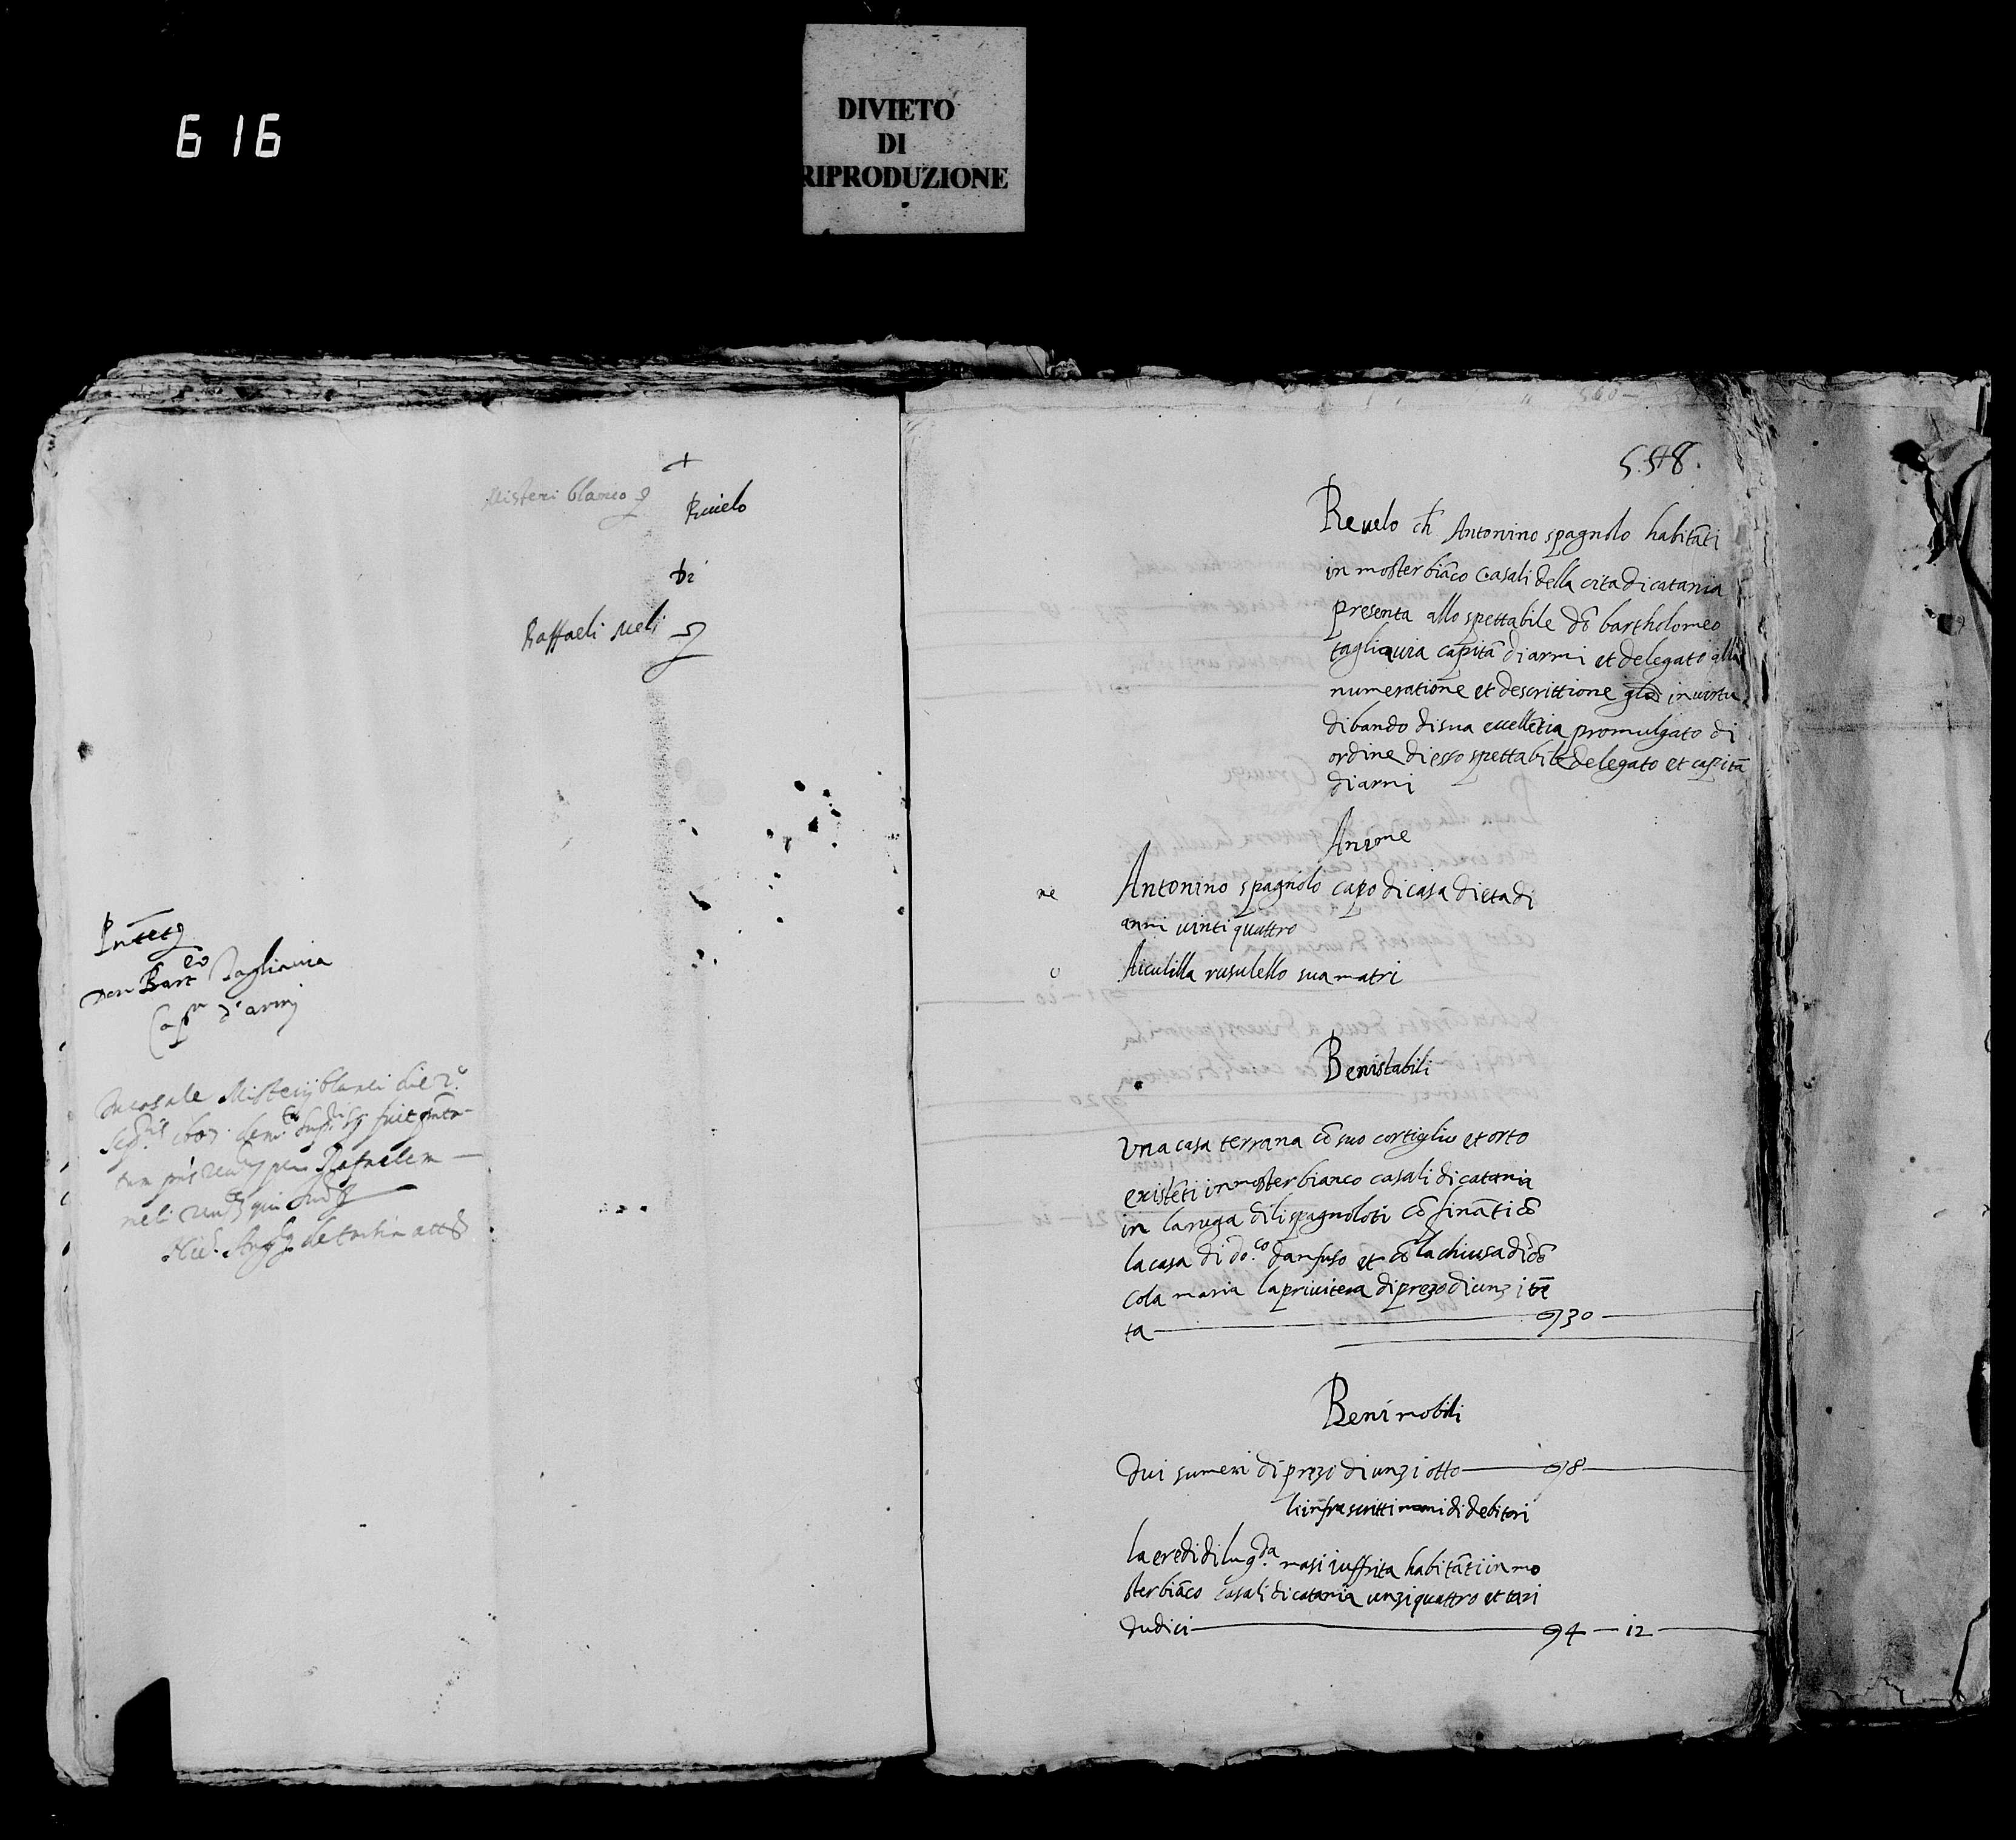 616
DIVIETO
DI
RIPRODUZIONE
+
Misteri blanco
Rivelo
Di
Raffaeli Meli
Don Bart.eo Tagliavia
Cap.n d'armi
In casale Misterij blanci die
548.
Revelo ch Antonino spagnolo habitāti
in mosterbiāco Casali della cita di catania
presenta allo spettabile dō bartholomeo
tagliavia capitā di armi et delegato alla
numeratione et descrittione in virtu
di bando di sua eccellētia promulgato di
ordine di esso spettabile delegato et capitā
di armi
Anime
Antonino spagnolo capo di casa di eta di
anni vinti quattro
rusulello sua matri
Beni stabili
Una casa terrana cō suo cortiglio et orto
existēti in mosterbianco casali di catania
in la ruga di li spagnoloti cō fināti cō
la casa di do.co danfuso et cō la chiusa di dō
Cola maria la privitera di prezo di unzi trē
ta 30
Beni mobili
Dui sumeri di prezo di unzi otto 8
li infrascritti nomi di debitori
La eredi di masi iuffrita habitāti in mo
sterbiāco casali di catania unzi quattro et tari
dudici 4 — 12